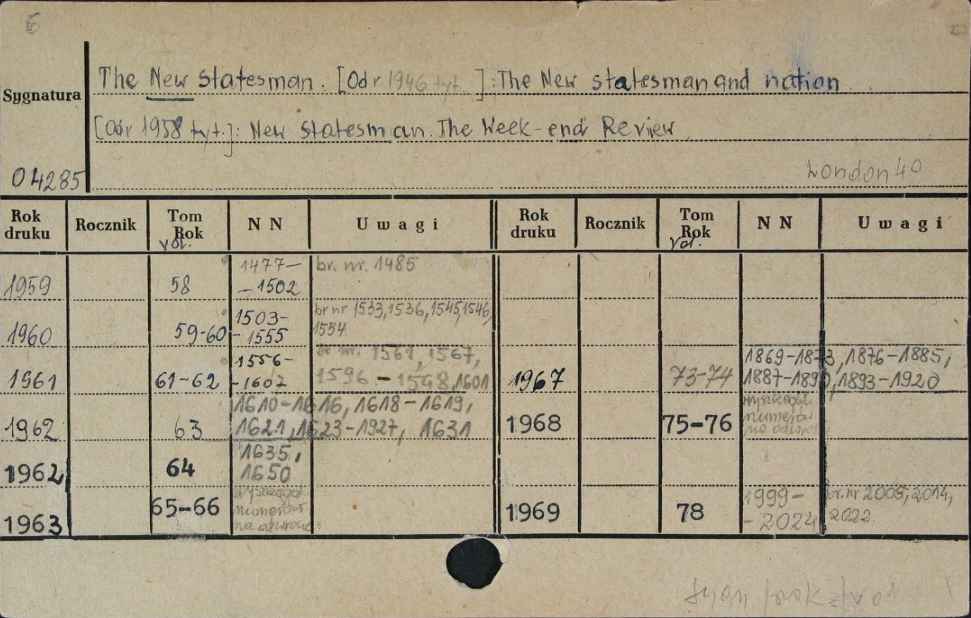 5
The New Statesman. [Od r 1946 tyt.]: The New Statesman and nation
Sygnatura
[Od r 1958 tyt.]: New Statesman. The Week-end Review
04285
London 40
Rok druku Rocznik Tom Rok vol. NN Uwagi Rok druku Rocznik Tom Rok vol. NN Uwagi
1959 58 1477- -1502 br. nr. 1485
1960 59-60 1503- -1555 br nr 1533, 1536, 1545, 1546, 1554
1961 61-62 1556- -1602 br. nr. 1561, 1567, 1596-1598, 1601 1967 73-74 1869-1873, 1876-1885, 1887-1890, 1893-1920
1962 63 1610-1616, 1618-1619, 1621, 1623-1927, 1631 1968 75-76 numerów na odwrocie
1962 64 1635, 1650
1963 65-66 numerów na odwrocie 1969 78 1999- -2024 br. nr 2005, 2014, 2022